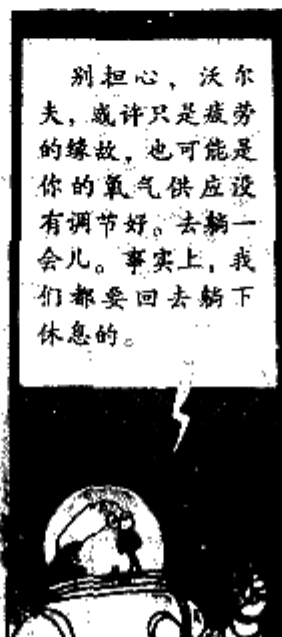 别担心，沃尔
夫，或许只是疲劳
的缘故，也可能是
你的氧气供应没
有调节好。去躺一
会儿。事实上，我
们都要回去躺下
休息的。